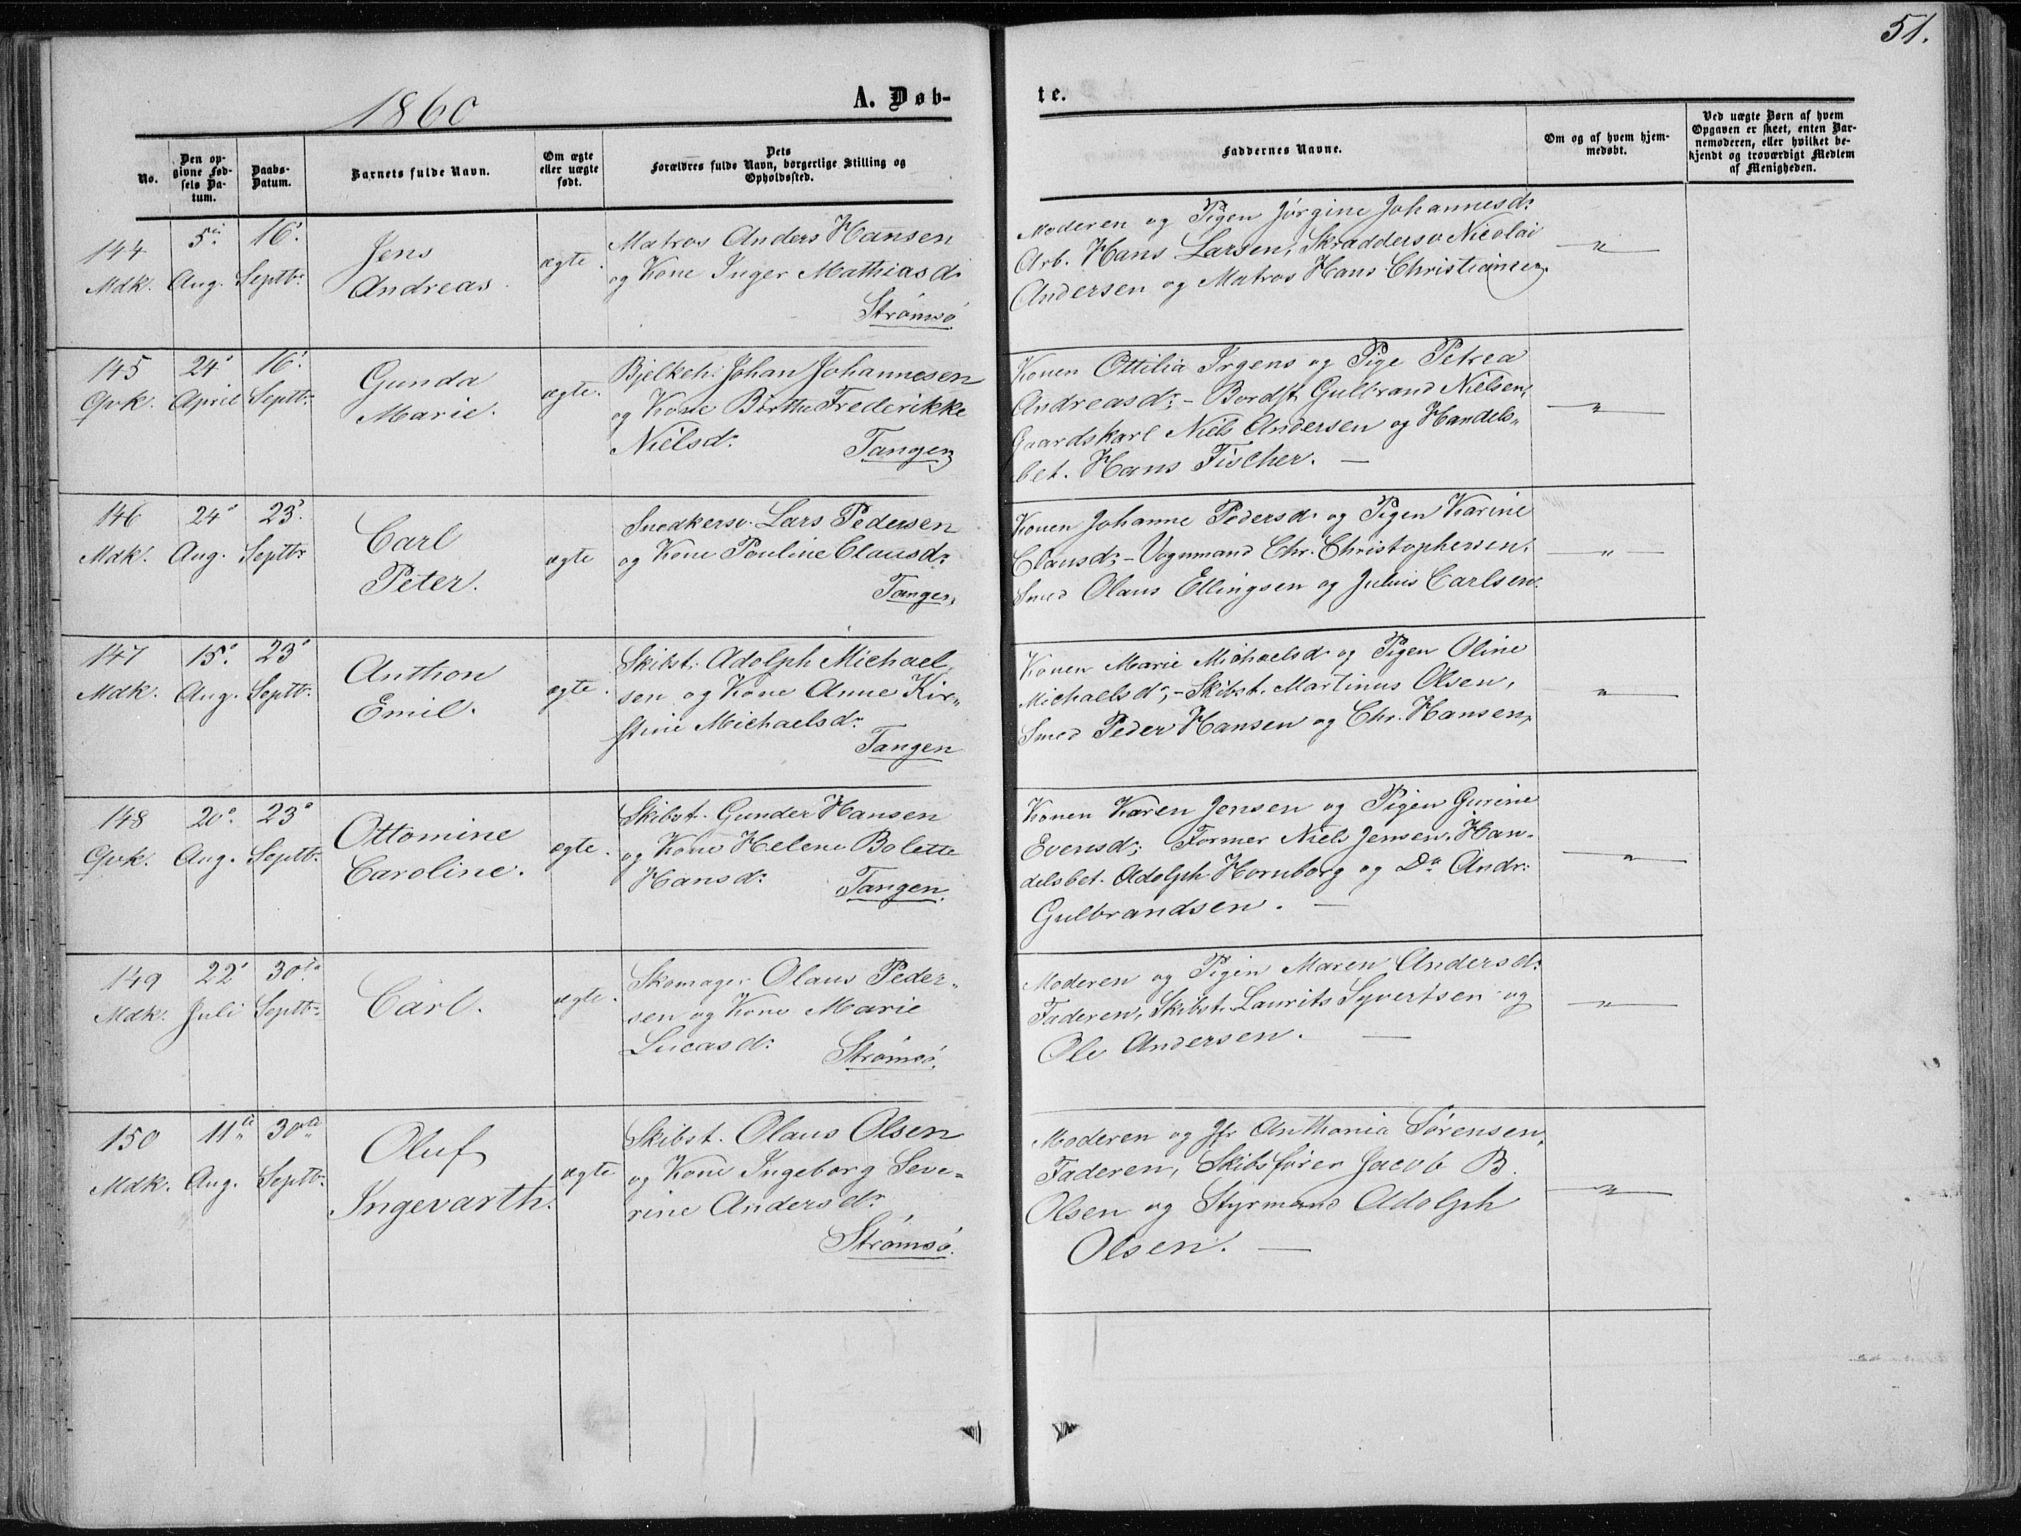 51.
1860 A. Døb-
te.
No.
Den op-
givne Fød-
sels Da-
tum.
Daabs-
Datum.
Barnets fulde Navn.
Om ægte
eller uægte
født.
Dets
Forældres fulde Navn, borgerlige Stilling og
Opholdssted.
Faddernes Navne.
Om og af hvem hjem-
medøbt.
Ved uægte Børn af hvem
Opgaven er skeet, enten Bar-
nemoderen, eller hvilket be-
kjendt og troværdigt Medlem
af Menigheden.
144
Mdk.
5te
Aug.
16'
Septbr
Jens
Andreas.
ægte.
Matros Anders Hansen
og Kone Inger Mathiasdr
Strømsø
Moderen og Pigen Jørgine Johannesdr
Arb. Hans Larsen, Skraddersv Nicolai
Andersen og Matros Hans Christiansen.
"
145
Qvk.
24'
April
16'
Septbr
Gunda
Marie.
ægte.
Bjelkeh. Johan Johannesen
og Kone Børthe Frederikke
Nielsdr
Tangen
Konen Ottilia Irgens og Pige Petrea
Andreasdr - Bordst. Gulbrand Nielsen,
Gaardskarl Niels Andersen og Handels-
bet. Hans Fischer. —
"
146
Mdk.
24'
Aug.
23'
Septbr
Carl
Peter.
ægte
Snedkersv. Lars Pedersen
og Kone Pouline Clausdr
Tangen
Konen Johanne Pedersdr og Pigen Karine
Clausdr - Vognmand Chr. Christophersen,
Smed Olaus Ellingsen og Julius Carlsen.
"
147
Mdk.
15'
Aug.
23'
Septbr
Anthon
Emil.
ægte.
Skibst. Adolph Michael-
sen og Kone Anne Kir-
stine Michaelsdr
Tangen
Konen Marie Michaelsd. og Pigen Oline
Michaelsdr, - Skibst. Martinus Olsen,
Smed Peder Hansen og Chr. Hansen,
"
148
Qvk.
20'
Aug.
23'
Septbr
Ottomine
Caroline.
ægte.
Skibst. Gunder Hansen
og Kone Helene Bolette
Hansdr
Tangen.
Konen Karen Jensen og Pigen Gurine
Evensd; Former Niels Jensen, Han-
delsbet. Adolph Hornborg og Do Andr:
Gulbrandsen. —
"
149
Mdk.
22'
Juli
30te
Septbr
Carl.
ægte.
Skomager Olaus Peder-
sen og Kone Marie
Lucasdr
Strømsø.
Moderen og Pigen Maren Andersdr
Faderen, Skibst. Laurits Syvertsen og
Ole Andersen. —
"
150
Mdk.
11te
Aug.
30te
Septbr
Oluf
Ingevarth.
ægte
Skibst. Olaus Olsen
og Kone Ingeborg Seve-
rine Andersdr
Strømsø.
Moderen og Jfr Anthonia Sørensen,
Faderen, Skibsfører Jacob B.
Olsen og Styrmand Adolph
Olsen. —
"